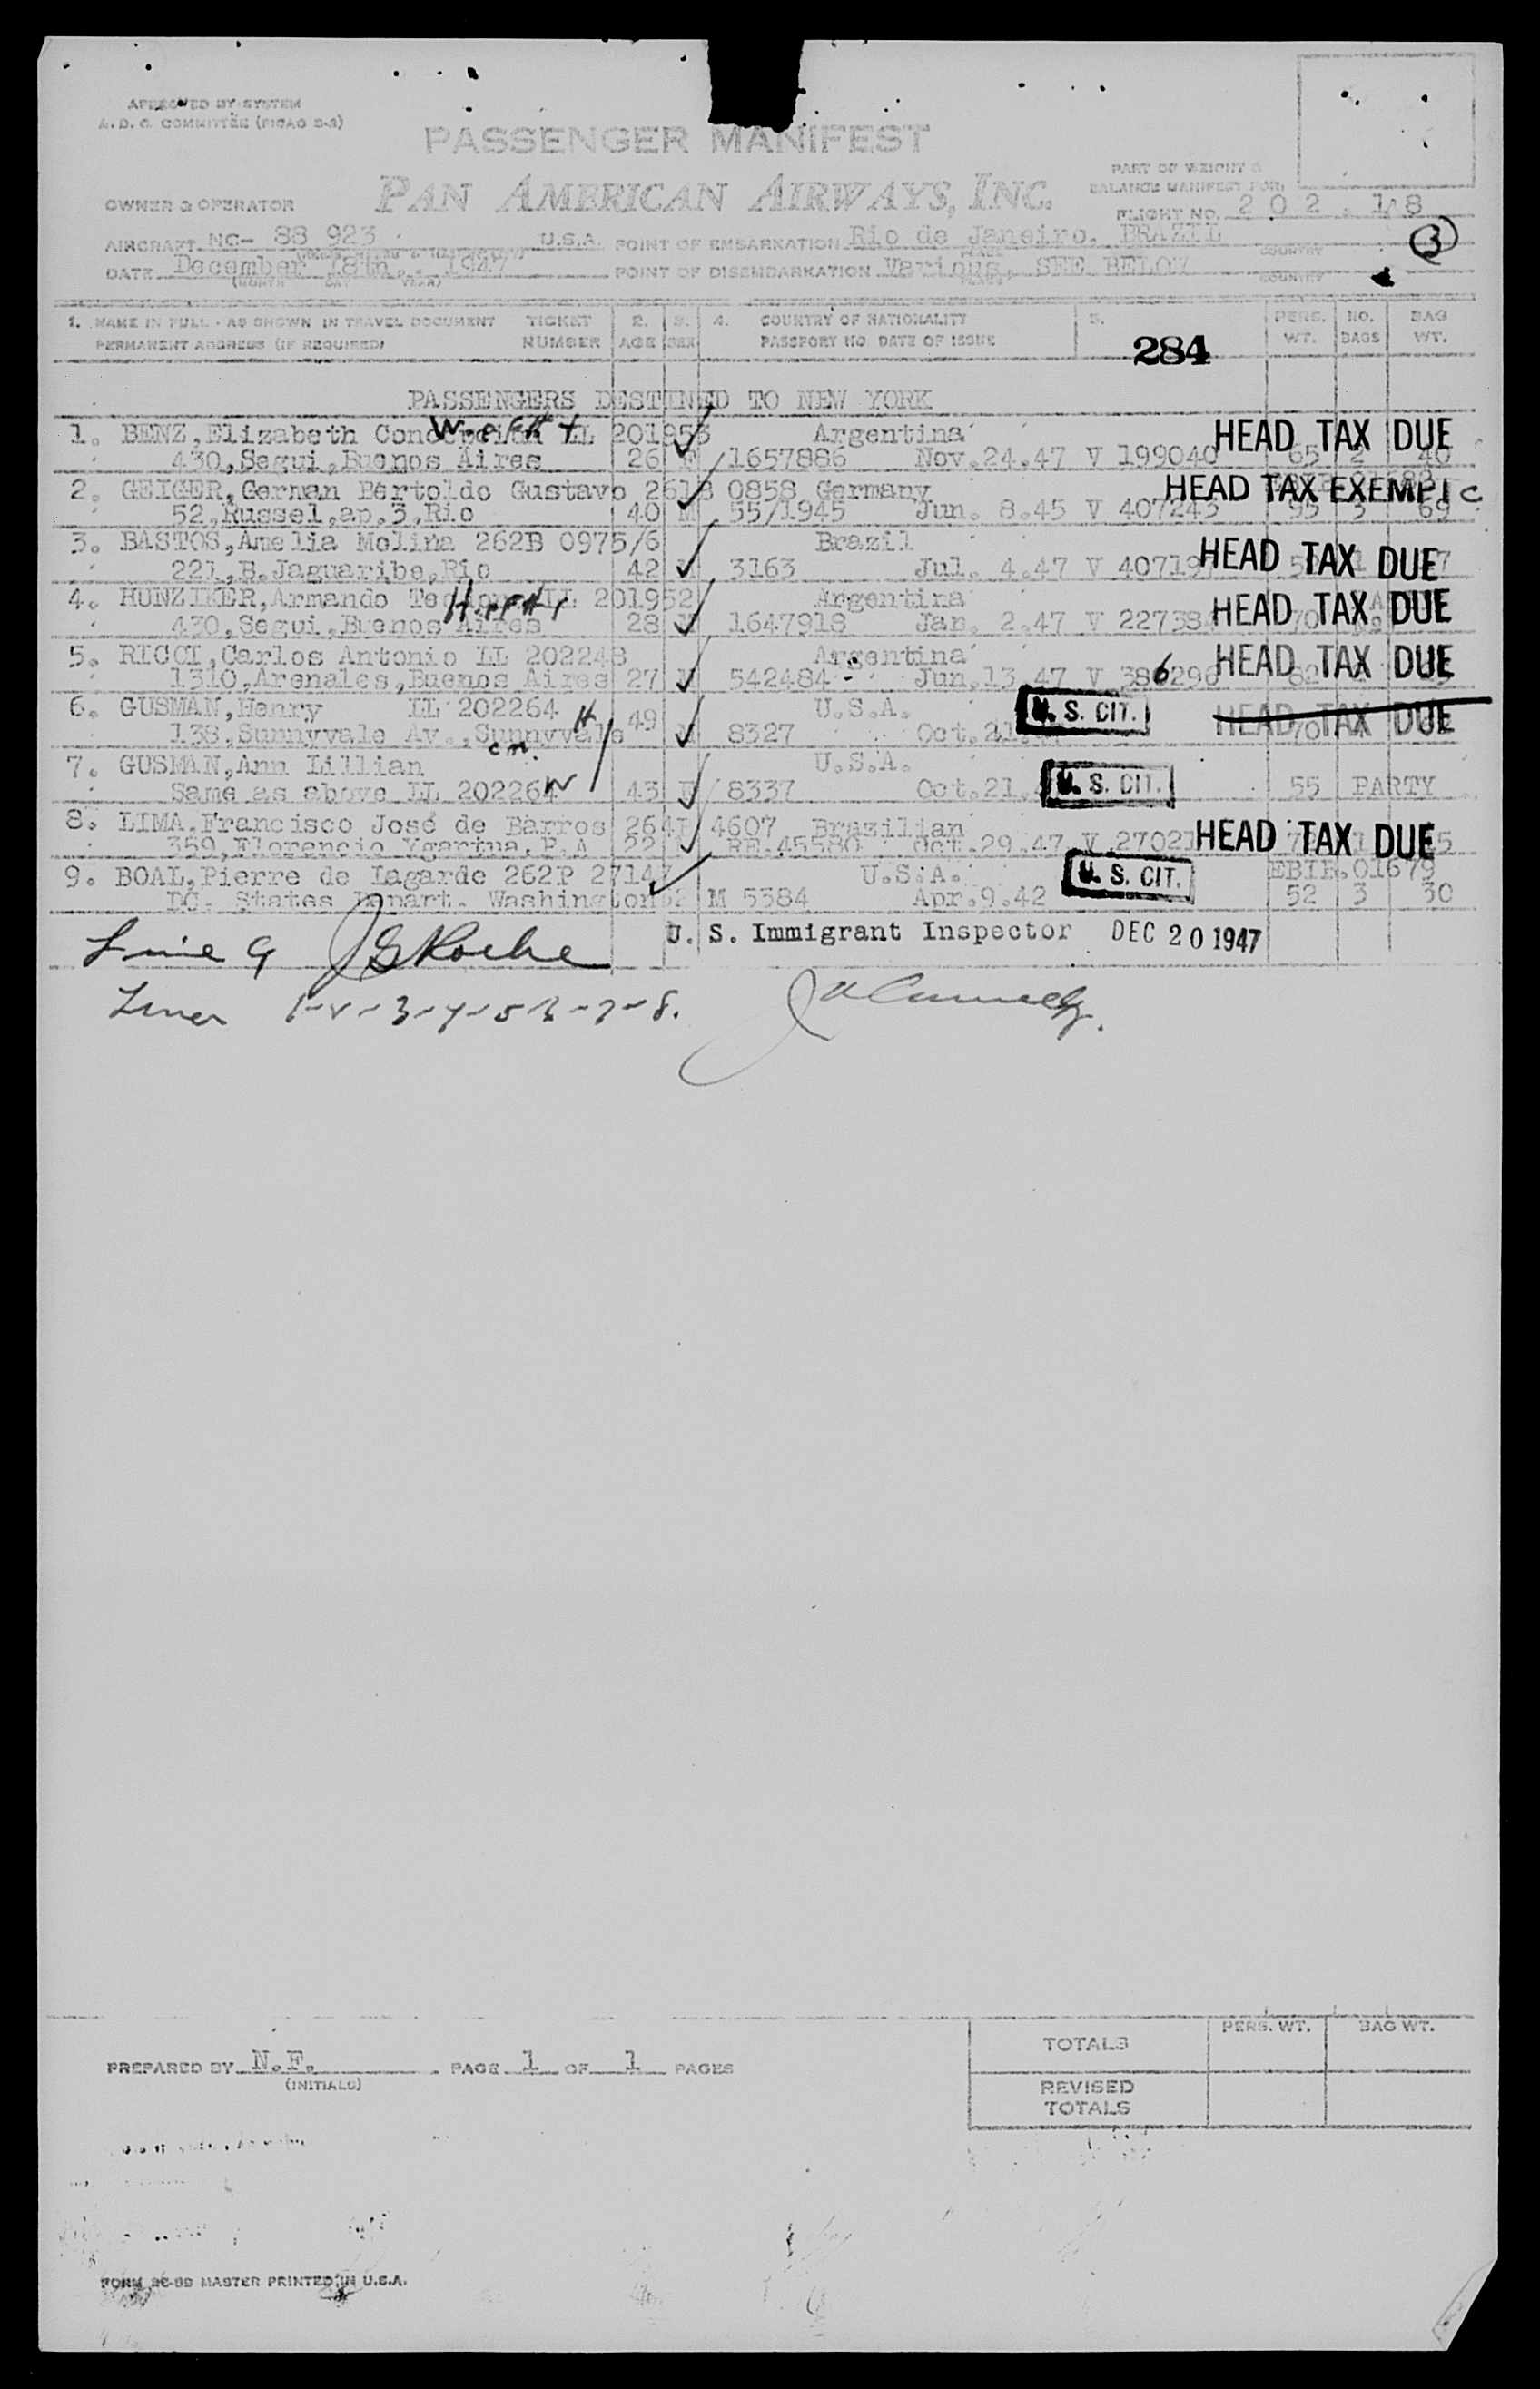 APPROVED BY SYSTEM
A. D. C. COMMITTEE (PICAO D-3)
PASSENGER MANIFEST
PAN AMERICAN AIRWAYS, INC.
PART OF WEIGHT &
BALANCE MANIFEST FOR:
OWNER & OPERATOR
FLIGHT NO. 202 . 18
AIRCRAFT NC- 88 923 U.S.A. POINT OF EMBARKATION Rio de Janeiro. BRAZIL
COUNTRY
3
DATE December 18th., 1947 POINT OF DISEMBARKATION Various, SEE BELOW
(MONTH DAY YEAR) PLACE COUNTRY
1. NAME IN FULL - AS SHOWN IN TRAVEL DOCUMENT TICKET 2. 3. 4. COUNTRY OF NATIONALITY 5. PERS. NO. BAG
PERMANENT ADDRESS (IF REQUIRED) NUMBER AGE SEX PASSPORT NO DATE OF ISSUE 284 WT. BAGS WT.
PASSENGERS DESTINED TO NEW YORK
1. BENZ,Elizabeth LL 201953 Argentina HEAD TAX DUE
430,Segui,Buenos Aires 26 F 1657886 Nov.24.47 V 199040 65 2 40
2. GEIGER,German Bertoldo Gustavo 261B 0858 Germany HEAD TAX EXEMPT C
52,Russel,ap.3,Rio 40 M 55/1945 Jun. 8.45 V 407243 95 3 69
3. BASTOS,Amelia Molina 262B 0975/6 Brazil HEAD TAX DUE
221,B.Jaguaribe,Rio 42 3163 Jul. 4.47 V 40719
4. HUNZIKER,Armando LL 201952 Argentina HEAD TAX DUE
430,Segui,Buenos Aires 28 M 1647918 Jan. 2.47 V 22738 70
5. RICCI,Carlos Antonio LL 202248 Argentina HEAD TAX DUE
1310,Arenales,Buenos Aires 27 M 542484 Jun.13.47 V 386296 82
6. GUSMAN,Henry LL 202264 H 49 U.S.A. U. S. CIT. HEAD TAX DUE
138,Sunnyvale Av.,Sunnyvale M 8327 Oct.21. 70
7. GUSMAN,Ann Lillian U.S.A.
Same as above LL 202264 W 43 F 8337 Oct.21. U. S. CIT. 55 PARTY
8. LIMA,Francisco José de Barros 264P 4607 Brazilian HEAD TAX DUE
359,Florencio Ygartua,P.A 22 RE.45580 Oct.29.47 V 2702
9. BOAL,Pierre de Lagarde 262P 27147 U.S.A. U. S. CIT. EBIR.01679
DC. States Depart. Washington 52 M 5384 Apr.9.42 52 3 30
Line 9 J G Roche U. S. Immigrant Inspector DEC 20 1947
Lines 1-2-3-4-5-6-7-8.
TOTALS PERS. WT. BAG WT.
PREPARED BY N.F. PAGE 1 OF 1 PAGES
(INITIALS)
REVISED
TOTALS
FORM 26-99 MASTER PRINTED IN U.S.A.